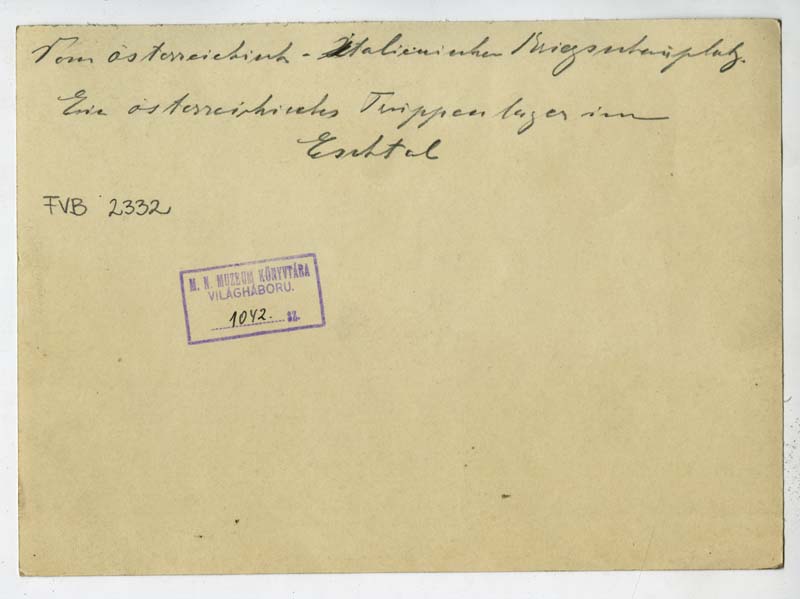 Vom österreichisch - Italienischen Kriegsschauplatz.
Ein österreichisches Truppenlager im
Eschtal
FVB 2332
M. N. MUZEUM KÖNYVTÁRA
VILÁGHÁBORU.
1042. SZ.